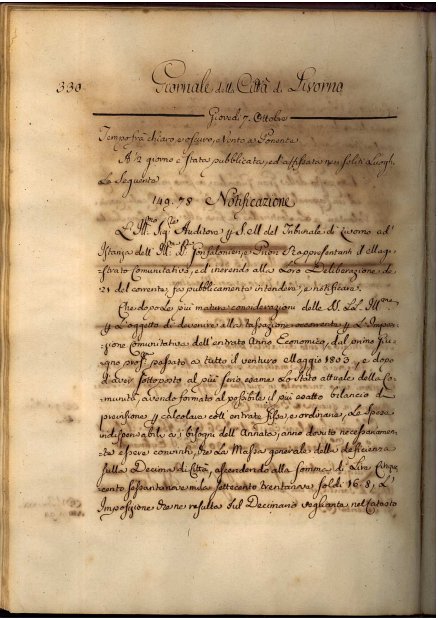 330 Giornale della Città di Livorno
Giovedi 7. Ottobre
Tempo frà chiaro e oscuro, e Vento a Ponente
A 1/2 giorno è stata pubblicata, ed affissata nei soliti Luoghi
La Seguente
149. 78 Notificazione
L' Ill.mo Sig.re Auditore p S. M del Tribunale di Livorno ad
Istanza dell' Ill.mi SS. Gonfaloniere, e Priori Rappresentanti il Mag=
=strato Comunitativo, ed inerendo alla Loro Deliberazione de
21 del corrente, fa pubblicamente intendere, e notificare.
Che dopo le più mature considerazioni delle SS. LL. Ill.me
p L'oggetto di devenire alla tassazione occorrente p L'Impo=
=zione comunitativa dell' entrato Anno Economico, dal primo Giu=
=gno pross. passato a tutto il venturo Maggio 1803, e dopo
d'aver sottoposto al più serio esame Lo stato attuale della Co=
=munità, avendo formato al possibile il più esatto bilancio di
previsione, e calcolate coll' entrate fisse, e ordinarie, Le spese
indispensabili a i bisogni dell' Annata, anno dovuto necessariamen=
=te essere convinti, che La Massa generale della deficienza
sulla Decima di Città, ascendendo alla somma di Lire Cinque
cento sessantanove mila settecento trentanove soldi 16. 8, L'
Imposizione che ne resulta sul Decimino vegliante nel Catasto